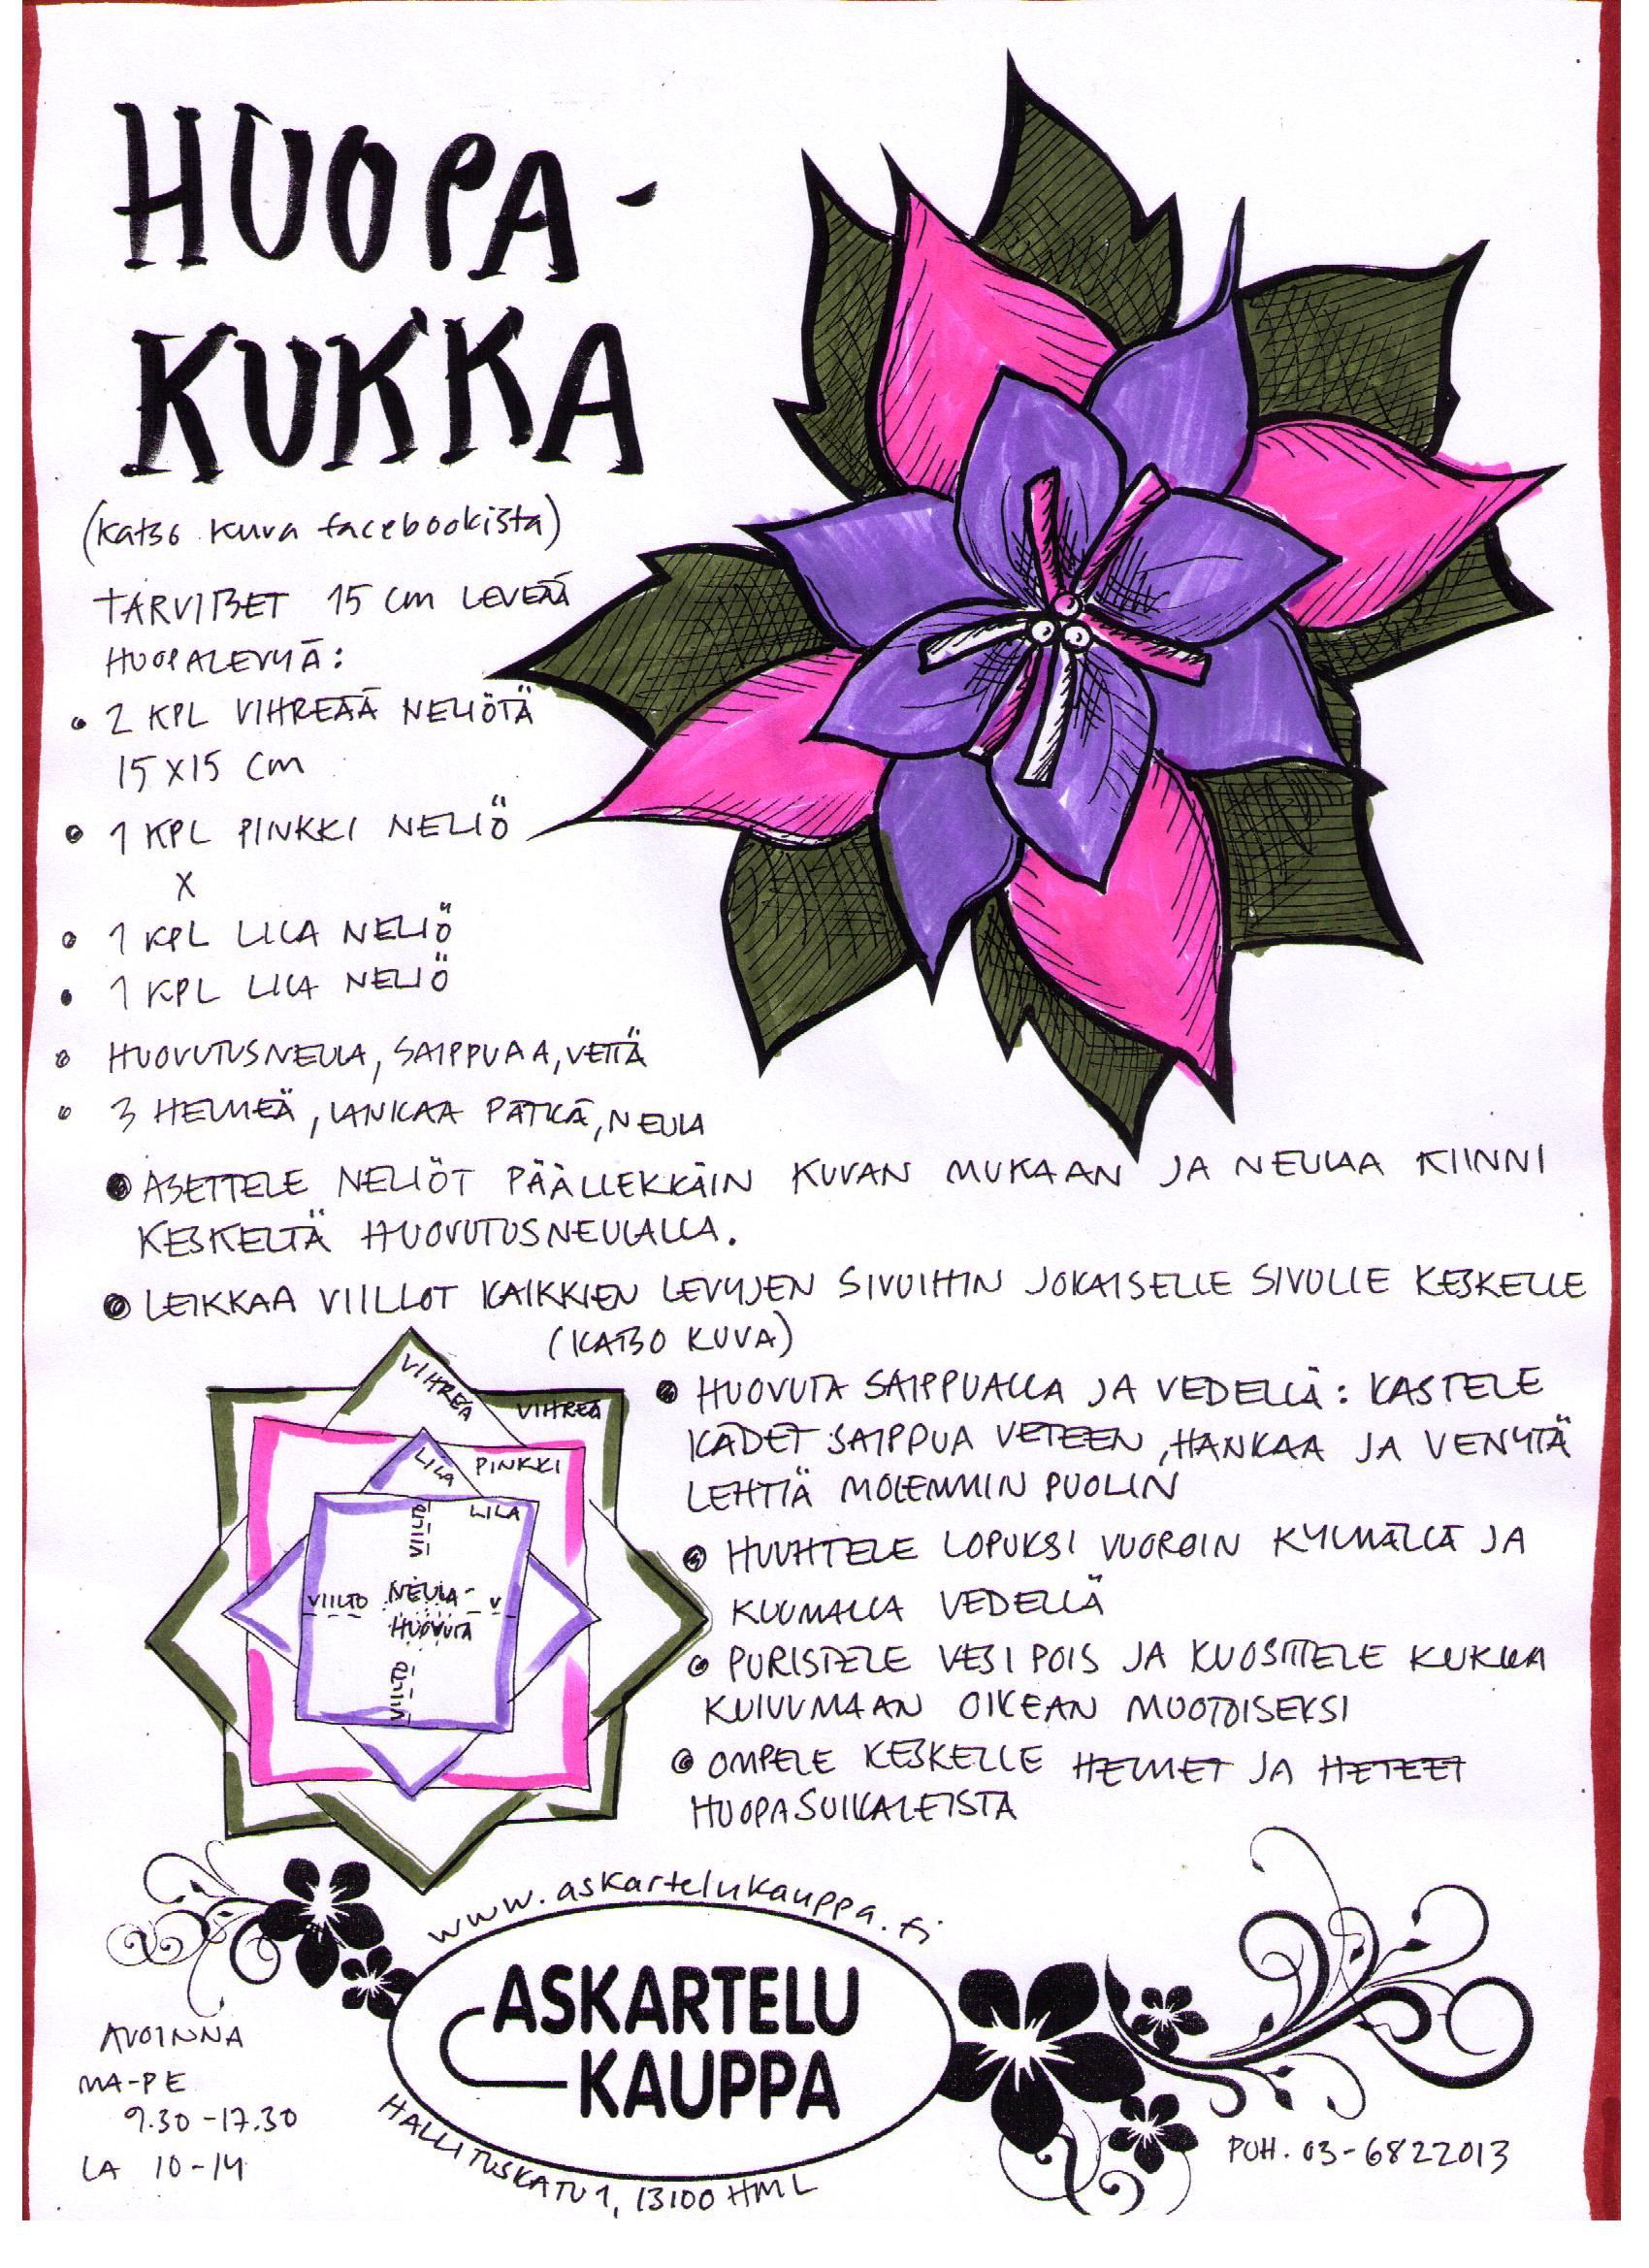 HUOPA-
KUKKA
(katso kuva facebookista)
TARVITSET 15 cm LEVEÄÄ
HUOPALEVYÄ:
• 2 KPL VIHREÄÄ NELIÖTÄ
15x15 cm
• 1 KPL PINKKI NELIÖ
X
• 1 KPL LILA NELIÖ
• 1 KPL LILA NELIÖ
• HUOVUTUSNEULA, SAIPPUAA, VETTÄ
• 3 HELMEÄ, LANKAA PÄTKÄ, NEULA
• ASETTELE NELIÖT PÄÄLLEKKÄIN KUVAN MUKAAN JA NEULAA KIINNI
KESKELTÄ HUOVUTUSNEULALLA.
• LEIKKAA VIILLOT KAIKKIEN LEVYJEN SIVUIHIN JOKAISELLE SIVULLE KESKELLE
(KATSO KUVA)
VIHREÄ
VIHREÄ
LILA
PINKKI
LILA
VIILTO
VIILTO
NEULA-
HUOVUTA
V
VIILTO
• HUOVUTA SAIPPUALLA JA VEDELLÄ: KASTELE
KÄDET SAIPPUA VETEEN, HANKAA JA VENYTÄ
LEHTIÄ MOLEMMIN PUOLIN
• HUUHTELE LOPUKSI VUOROIN KYLMÄLLÄ JA
KUUMALLA VEDELLÄ
• PURISTELE VESI POIS JA KUOSITTELE KUKKA
KUIVUMAAN OIKEAN MUOTOISEKSI
• OMPELE KESKELLE HELMET JA HETEET
HUOPASUIKALEISTA
www.askartelukauppa.fi
ASKARTELU
KAUPPA
HALLITUSKATU 1, 13100 HML
AVOINNA
MA-PE
9.30-17.30
LA 10-14
PUH. 03-6822013